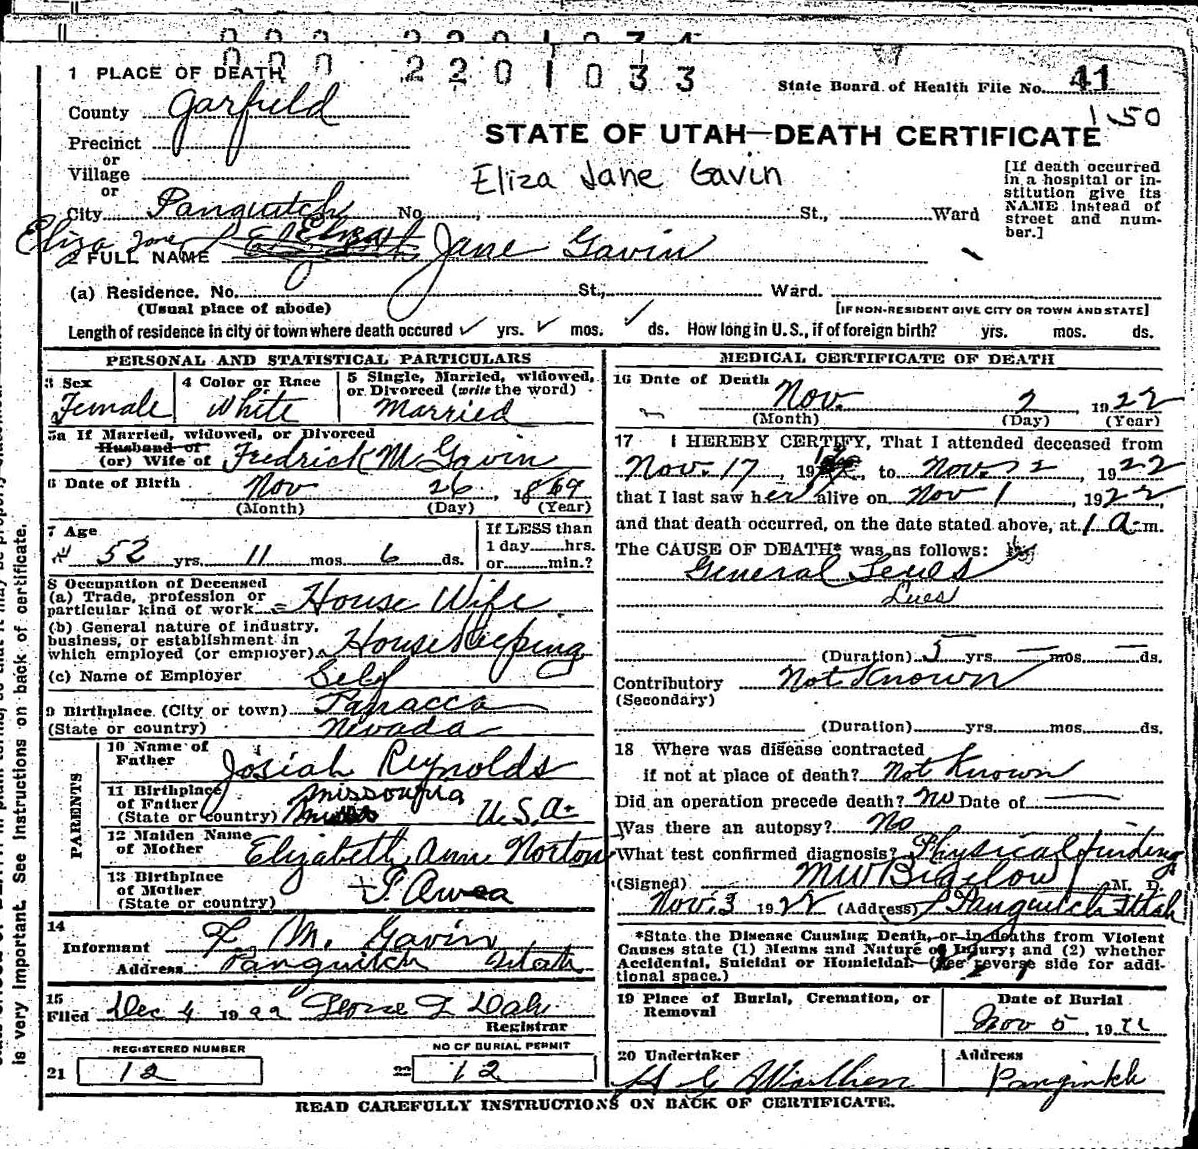 000 2201033
1 PLACE OF DEATH
State Board of Health File No. 41
County Garfield
1.50
STATE OF UTAH—DEATH CERTIFICATE
Precinct
or
Village
or
Eliza Jane Gavin
[If death occurred
in a hospital or in-
stitution give its
NAME instead of
street and num-
ber.]
City Panguitch No. , St., Ward
Eliza Jane
2 FULL NAME Jane Gavin
(a) Residence. No. St., Ward.
(Usual place of abode)
[IF NON-RESIDENT GIVE CITY OR TOWN AND STATE]
Length of residence in city or town where death occured ✓ yrs. ✓ mos. ✓ ds. How long in U.S., if of foreign birth? yrs. mos. ds.
PERSONAL AND STATISTICAL PARTICULARS
3 Sex
Female
4 Color or Race
White
5 Single, Married, widowed,
or Divorced (write the word)
Married
5a If Married, widowed, or Divorced
Husband of
(or) Wife of Fredrick M. Gavin
6 Date of Birth Nov 26, 1869
(Month) (Day) (Year)
7 Age
52 yrs. 11 mos. 6 ds.
If LESS than
1 day......hrs.
or......min.?
8 Occupation of Deceased
(a) Trade, profession or
particular kind of work House Wife
(b) General nature of industry,
business, or establishment in
which employed (or employer) House Keeping
(c) Name of Employer Self
9 Birthplace (City or town) Panacca
(State or country) Nevada
PARENTS
10 Name of
Father Josiah Reynolds
11 Birthplace
of Father
(State or country) U.S.A.
12 Maiden Name
of Mother Elizabeth Anne Norton
13 Birthplace
of Mother
(State or country)
14
Informant F. M. Gavin
Address Panguitch Utah
15
Filed Dec 4 1922
Registrar
REGISTERED NUMBER
21 12
NO OF BURIAL PERMIT
22 12
MEDICAL CERTIFICATE OF DEATH
16 Date of Death Nov. 2, 1922
(Month) (Day) (Year)
17 I HEREBY CERTIFY, That I attended deceased from
Nov. 17, 19 , to Nov. 1922
that I last saw her alive on Nov 1, 1922
and that death occurred, on the date stated above, at 1 a.m.
The CAUSE OF DEATH* was as follows:
General Leues
Lues
(Duration) 5 yrs. — mos. — ds.
Contributory Not Known
(Secondary)
(Duration) yrs. mos. ds.
18 Where was disease contracted
if not at place of death? Not Known
Did an operation precede death? No Date of —
Was there an autopsy? No
What test confirmed diagnosis? Physical finding
(Signed) M W Bigelow M. D.
Nov. 3 1922 (Address) Panguitch Utah
*State the Disease Causing Death, or in deaths from Violent
Causes state (1) Means and Nature of Injury; and (2) whether
Accidental, Suicidal or Homicidal. (See reverse side for addi-
tional space.)
19 Place of Burial, Cremation, or
Removal
Date of Burial
Nov 5, 1922
20 Undertaker
Address
READ CAREFULLY INSTRUCTIONS ON BACK OF CERTIFICATE.
is very important. See instructions on back of certificate.